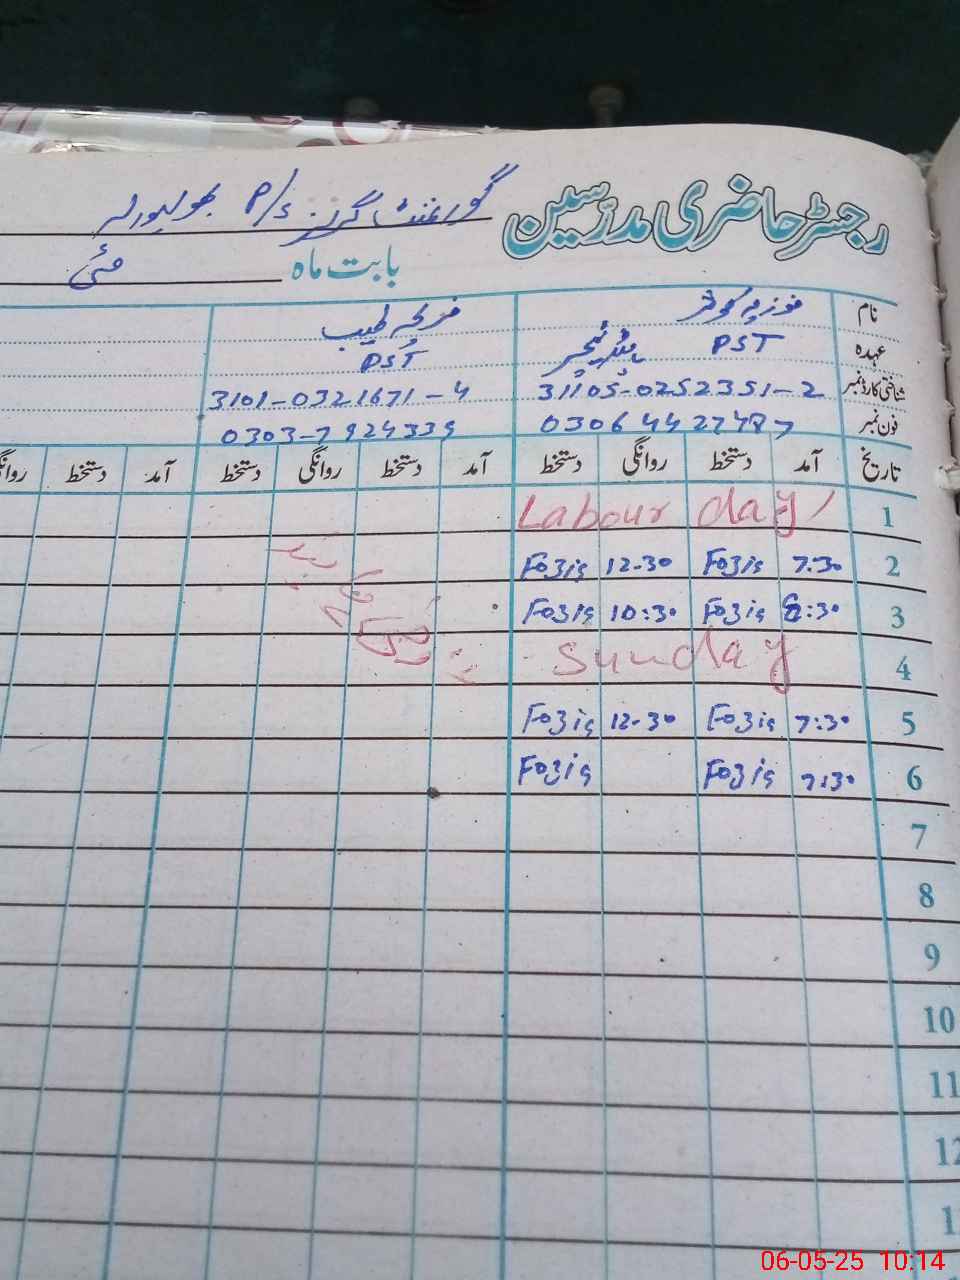 رجسٹر حاضری مدرسین گورنمنٹ گرلز P/S
بابت ماہ مئی
نام فوزیہ کوثر
عہدہ PST ہیڈ ٹیچر PST
شناختی کارڈ نمبر 31105-0252351-2 3101-0321671-4
فون نمبر 03064427487 0303-7924339
تاریخ آمد دستخط روانگی دستخط آمد دستخط روانگی دستخط آمد دستخط
1 Labour day
2 7:30 Fozia 12-30 Fozia
3 8:30 Fozia 10:30 Fozia
4 Sunday
5 7:30 Fozia 12-30 Fozia
6 7:30 Fozia Fozia
7
8
9
10
11
12
06-05-25 10:14